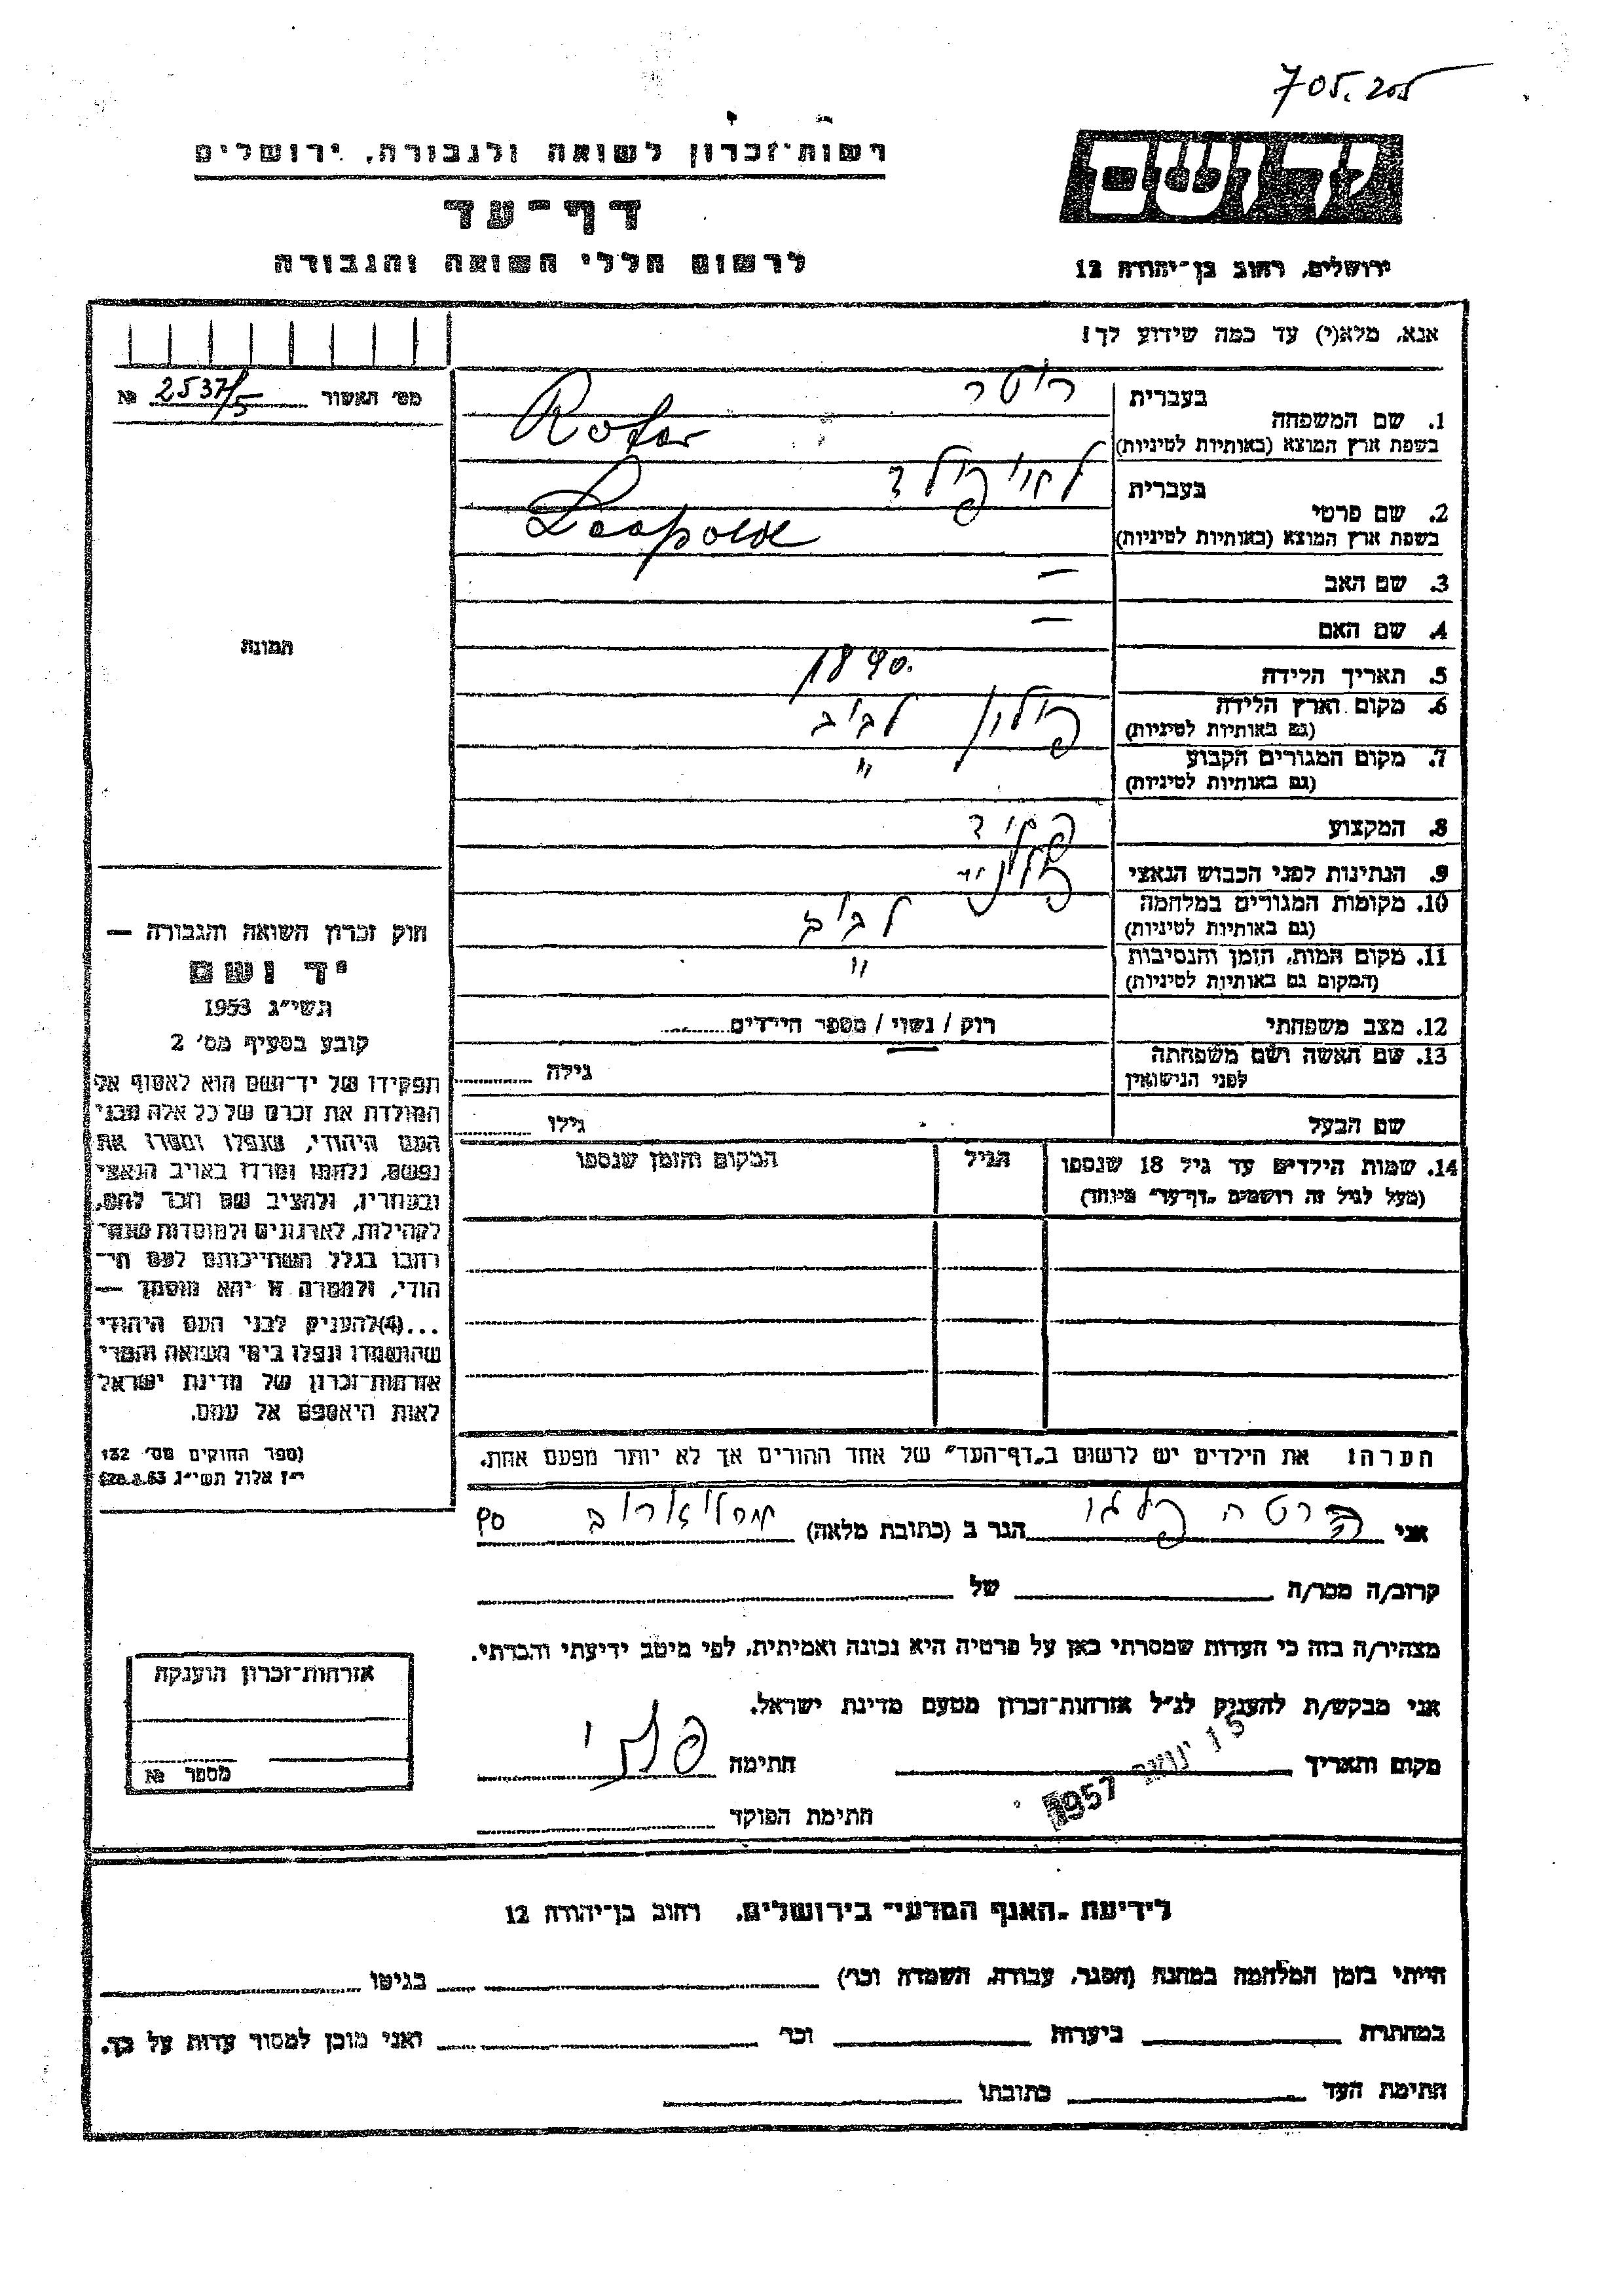 705.205
רשות־זכרון לשואה ולגבורה, ירושלים
יד ושם
דף־עד
לרשום חללי השואה והגבורה
ירושלים, רחוב בן־יהודה 12
אנא, מלא(י) עד כמה שידוע לך!
מס׳ האשור № 2537/5
בעברית
1. שם המשפחה
בשפת ארץ המוצא (באותיות לטיניות) Roter
בעברית
2. שם פרטי
בשפת ארץ המוצא (באותיות לטיניות) Leopold
3. שם האב –
4. שם האם –
תמונה
5. תאריך הלידה 1890.
6. מקום וארץ הלידה פולין לבוב
(גם באותיות לטיניות)
7. מקום המגורים הקבוע "
(גם באותיות לטיניות)
8. המקצוע פקיד
9. הנתינות לפני הכבוש הנאצי
10. מקומות המגורים במלחמה לבוב
(גם באותיות לטיניות)
11. מקום המות, הזמן והנסיבות "
(המקום גם באותיות לטיניות)
12. מצב משפחתי רווק / נשוי / מספר הילדים
13. שם האשה ושם משפחתה גילה
לפני הנישואין
שם הבעל גילו
14. שמות הילדים עד גיל 18 שנספו הגיל המקום והזמן שנספו
(מעל לגיל זה רושמים „דף־עד" מיוחד)
חוק זכרון השואה והגבורה —
יד ושם
תשי״ג 1953
קובע בסעיף מס׳ 2
תפקידו של יד־ושם הוא לאסוף אל
המולדת את זכרם של כל אלה מבני
העם היהודי, שנפלו ומסרו את
נפשם, נלחמו ומרדו באויב הנאצי
ובעוזריו, ולהציב שם וזכר להם,
לקהילות, לארגונים ולמוסדות שנח־
רבו בגלל השתייכותם לעם הי־
הודי, ולמטרה זו יהא מוסמך —
...(4)להעניק לבני העם היהודי
שהושמדו ונפלו בימי השואה והמרי
אזרחות־זכרון של מדינת ישראל
לאות היאספם אל עמם.
(ספר החוקים מס׳ 132
י״ז אלול תשי״ג 28.8.53)
הערה: את הילדים יש לרשום ב„דף־העד" של אחד ההורים אך לא יותר מפעם אחת.
אני ברטה הגר ב (כתובת מלאה) 90
קרוב/ה מכר/ה של
מצהיר/ה בזה כי העדות שמסרתי כאן על פרטיה היא נכונה ואמיתית, לפי מיטב ידיעתי והכרתי.
אני מבקש/ת להעניק לנ״ל אזרחות־זכרון מטעם מדינת ישראל.
מקום ותאריך 15 ינואר 1957 חתימה
חתימת הפוקד
אזרחות־זכרון הוענקה
מספר №
לידיעת „האגף המדעי" בירושלים, רחוב בן־יהודה 12
הייתי בזמן המלחמה במחנה (הסגר, עבודה, השמדה וכו׳) בגיטו
במחתרת ביערות וכו׳ ואני מוכן למסור עדות על כך.
חתימת העד כתובתו